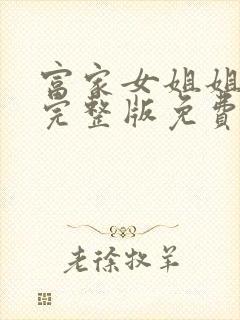 富家女姐姐
完整版免费
老徐牧羊